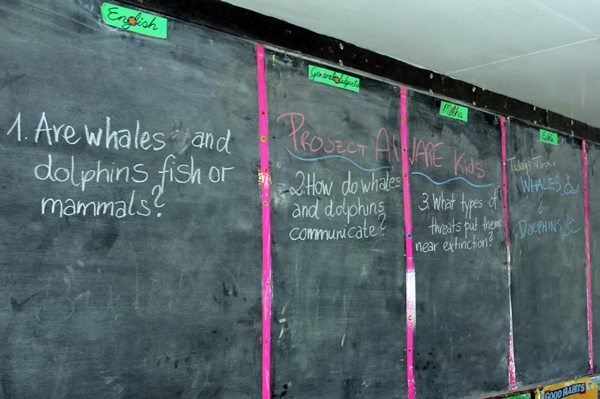 English
1. Are whales and
dolphins fish or
mammals?
General Subjects
PROJECT AWARE KIDS
2. How do whales
and dolphins
communicate?
Maths
3. What types of
threats put them
near extinction?
Today's Theme
WHALES
&
DOLPHINS
GOOD HABITS